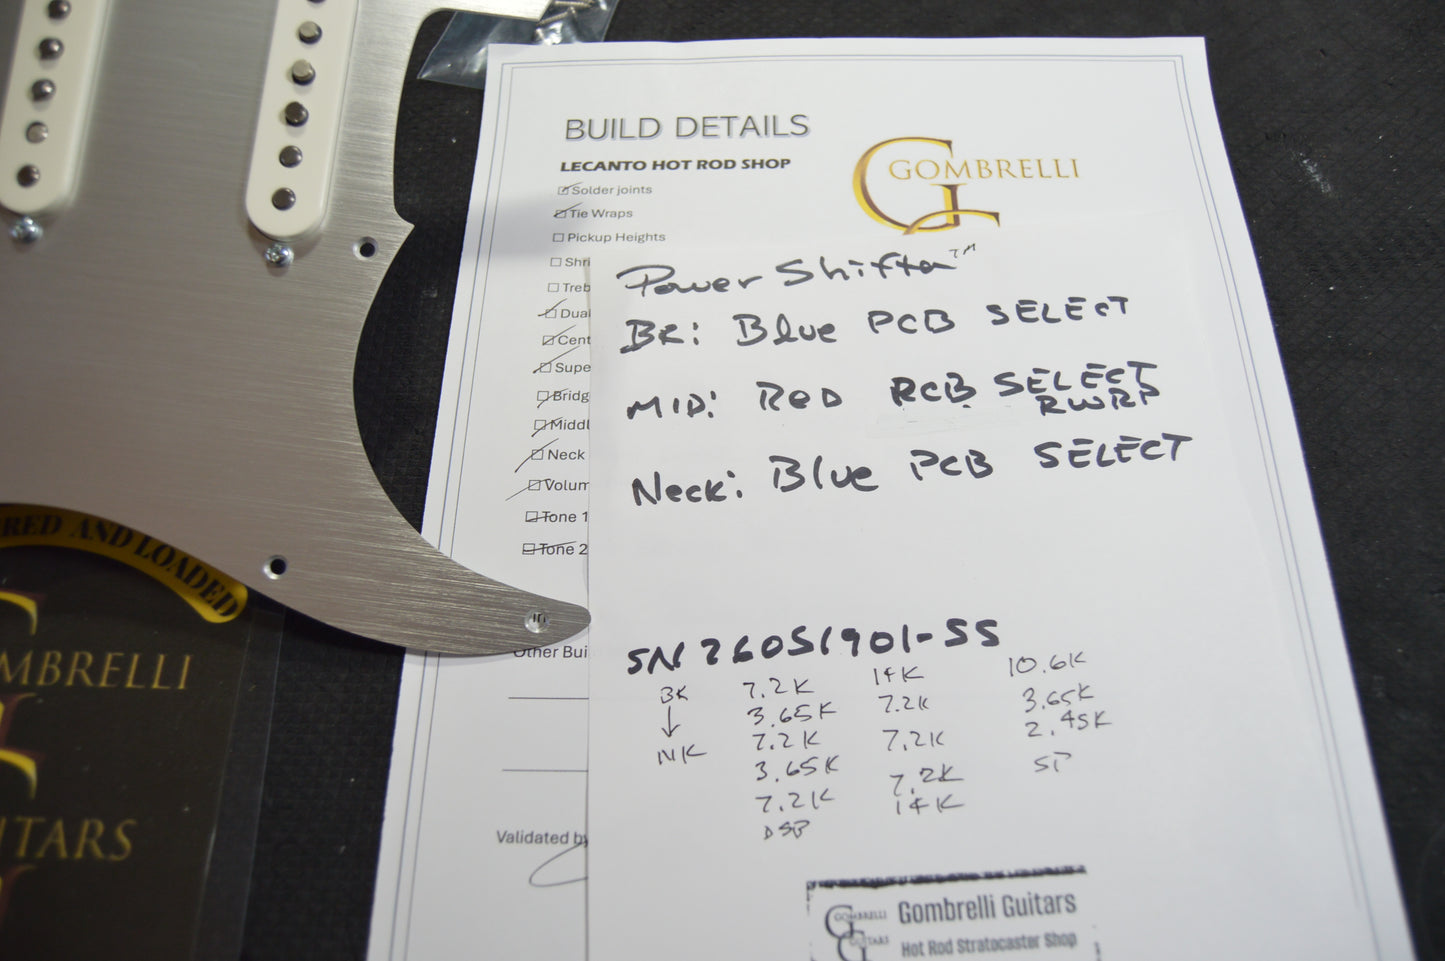 BUILD DETAILS
LECANTO HOT ROD SHOP
GOMBRELLI
Solder joints
Tie Wraps
Pickup Heights
Shri
Treb
Dual
Cent
Supe
Bridg
Middl
Neck
Volum
Tone 1
Tone 2
Other Bui
Validated by
Power Shifter TM
BK: Blue PCB SELECT
MID: RED PCB SELECT
RWRP
Neck: Blue PCB SELECT
SN 26051901-SS
BK 7.2K 14K 10.6K
↓ 3.65K 7.2K 3.65K
NK 7.2K 7.2K 2.45K
3.65K 7.2K SP
7.2K 14K
DSP
GOMBRELLI
GUITARS
Gombrelli Guitars
Hot Rod Stratocaster Shop
RED AND LOADED
OMBRELLI
ITARS